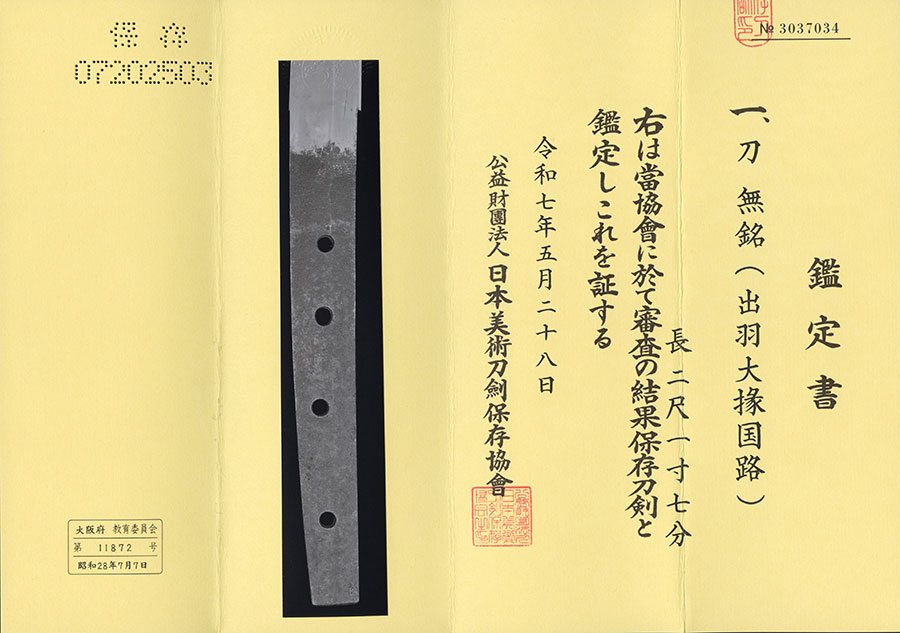 № 3037034
鑑定書
一、刀 無銘(出羽大掾国路)
長二尺一寸七分
右は當協會に於て審査の結果保存刀剣と
鑑定しこれを証する
令和七年五月二十八日
公益財團法人 日本美術刀劍保存協會
保存
07202503
大阪府 教育委員会
第 11872 号
昭和28年7月7日